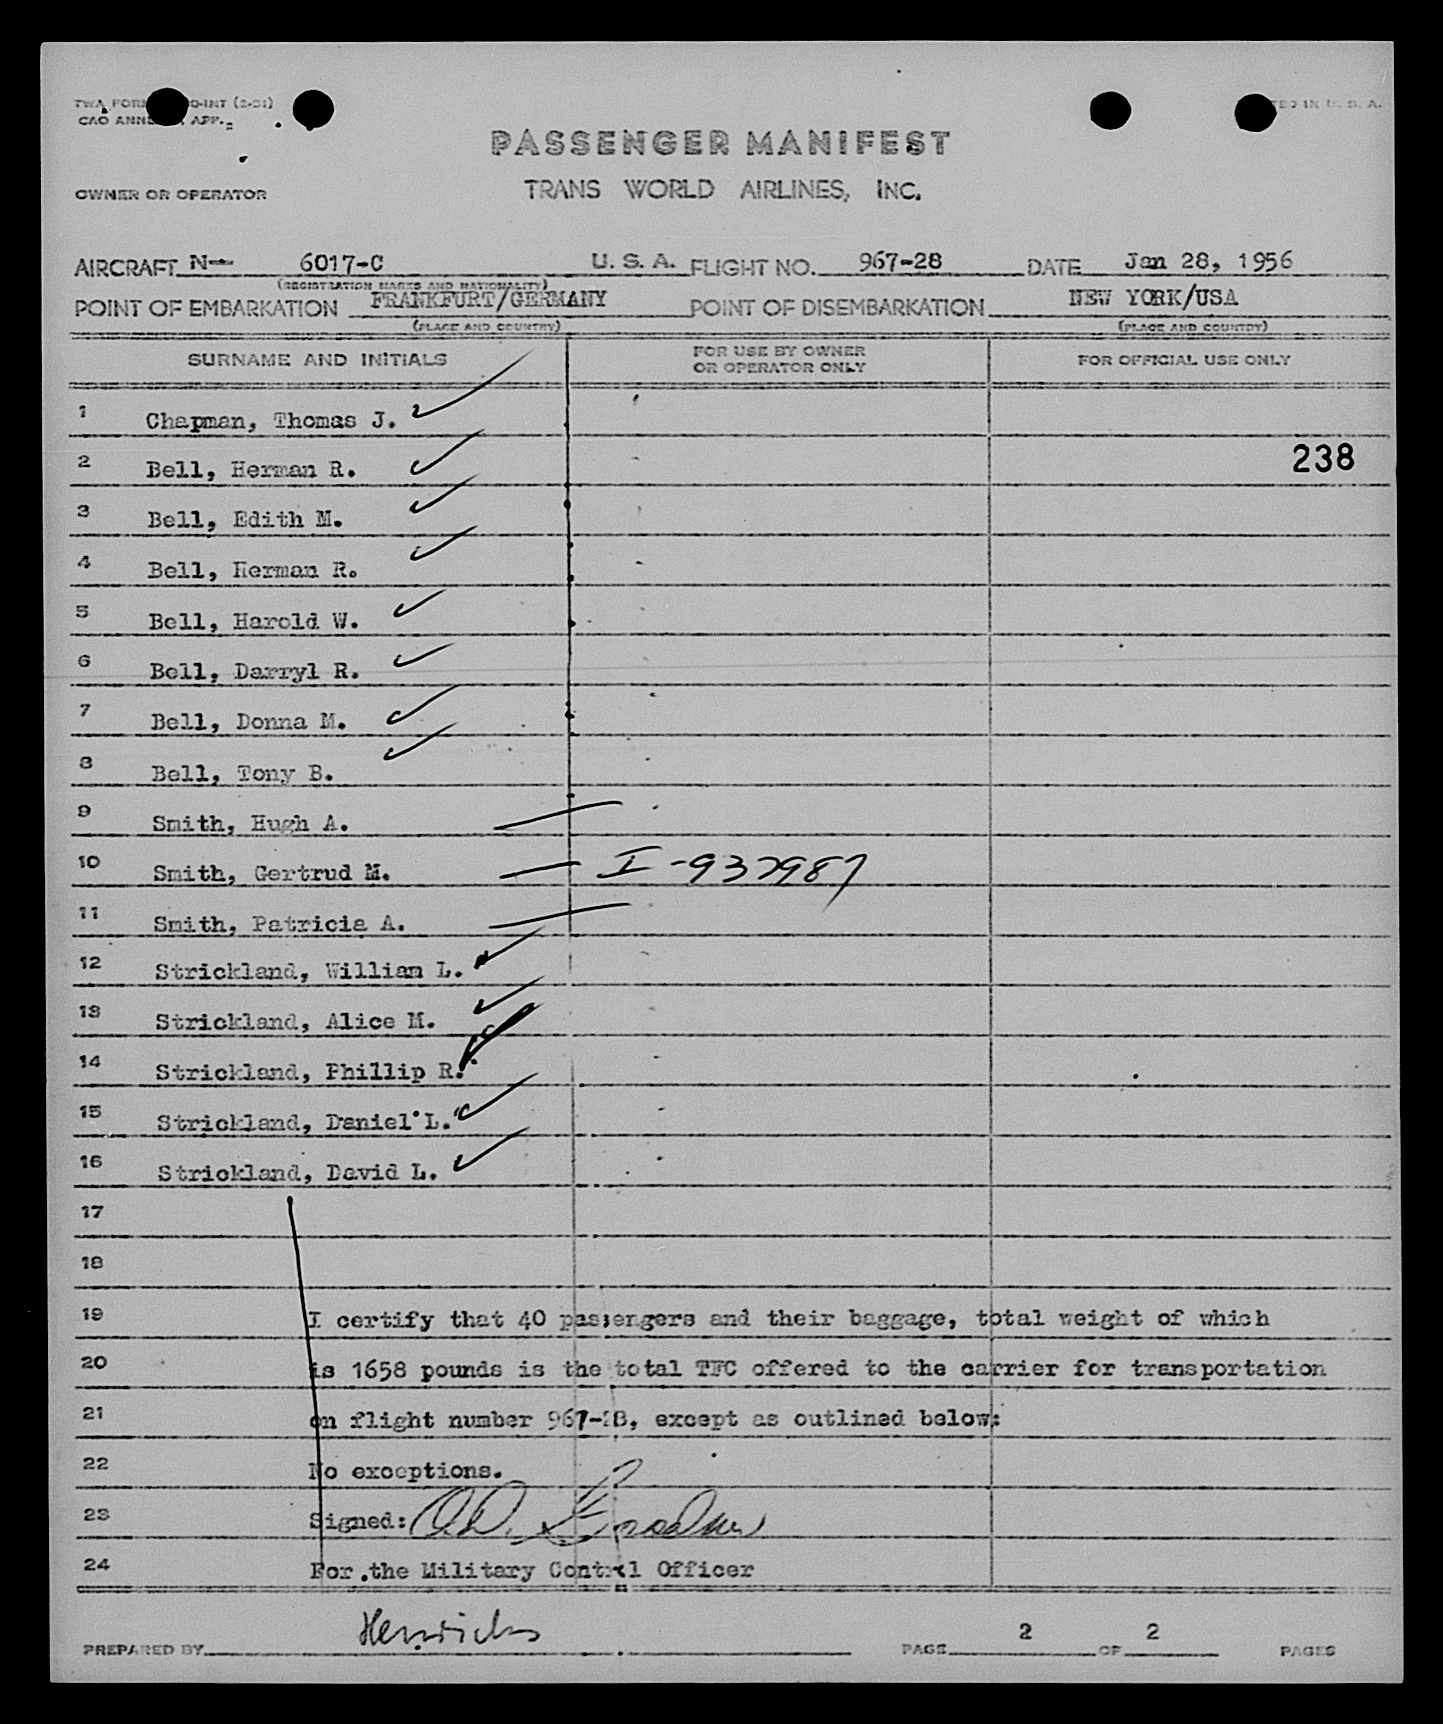 (2-51)
PASSENGER MANIFEST
OWNER OR OPERATOR
TRANS WORLD AIRLINES, INC.
AIRCRAFT N- 6017-C U. S. A. FLIGHT NO. 967-28 DATE Jan 28, 1956
(REGISTRATION MARKS AND NATIONALITY)
POINT OF EMBARKATION FRANKFURT/GERMANY POINT OF DISEMBARKATION NEW YORK/USA
(PLACE AND COUNTRY) (PLACE AND COUNTRY)
SURNAME AND INITIALS FOR USE BY OWNER OR OPERATOR ONLY FOR OFFICIAL USE ONLY
1 Chapman, Thomas J.
2 Bell, Herman R. 238
3 Bell, Edith M.
4 Bell, Herman R.
5 Bell, Harold W.
6 Bell, Darryl R.
7 Bell, Donna M.
8 Bell, Tony B.
9 Smith, Hugh A.
10 Smith, Gertrud M. I-937987
11 Smith, Patricia A.
12 Strickland, William L.
13 Strickland, Alice M.
14 Strickland, Phillip R.
15 Strickland, Daniel L.
16 Strickland, David L.
17
18
19 I certify that 40 passengers and their baggage, total weight of which
20 is 1658 pounds is the total TFC offered to the carrier for transportation
21 on flight number 967-28, except as outlined below:
22 No exceptions.
23 Signed:
24 For the Military Control Officer
PREPARED BY PAGE 2 OF 2 PAGES